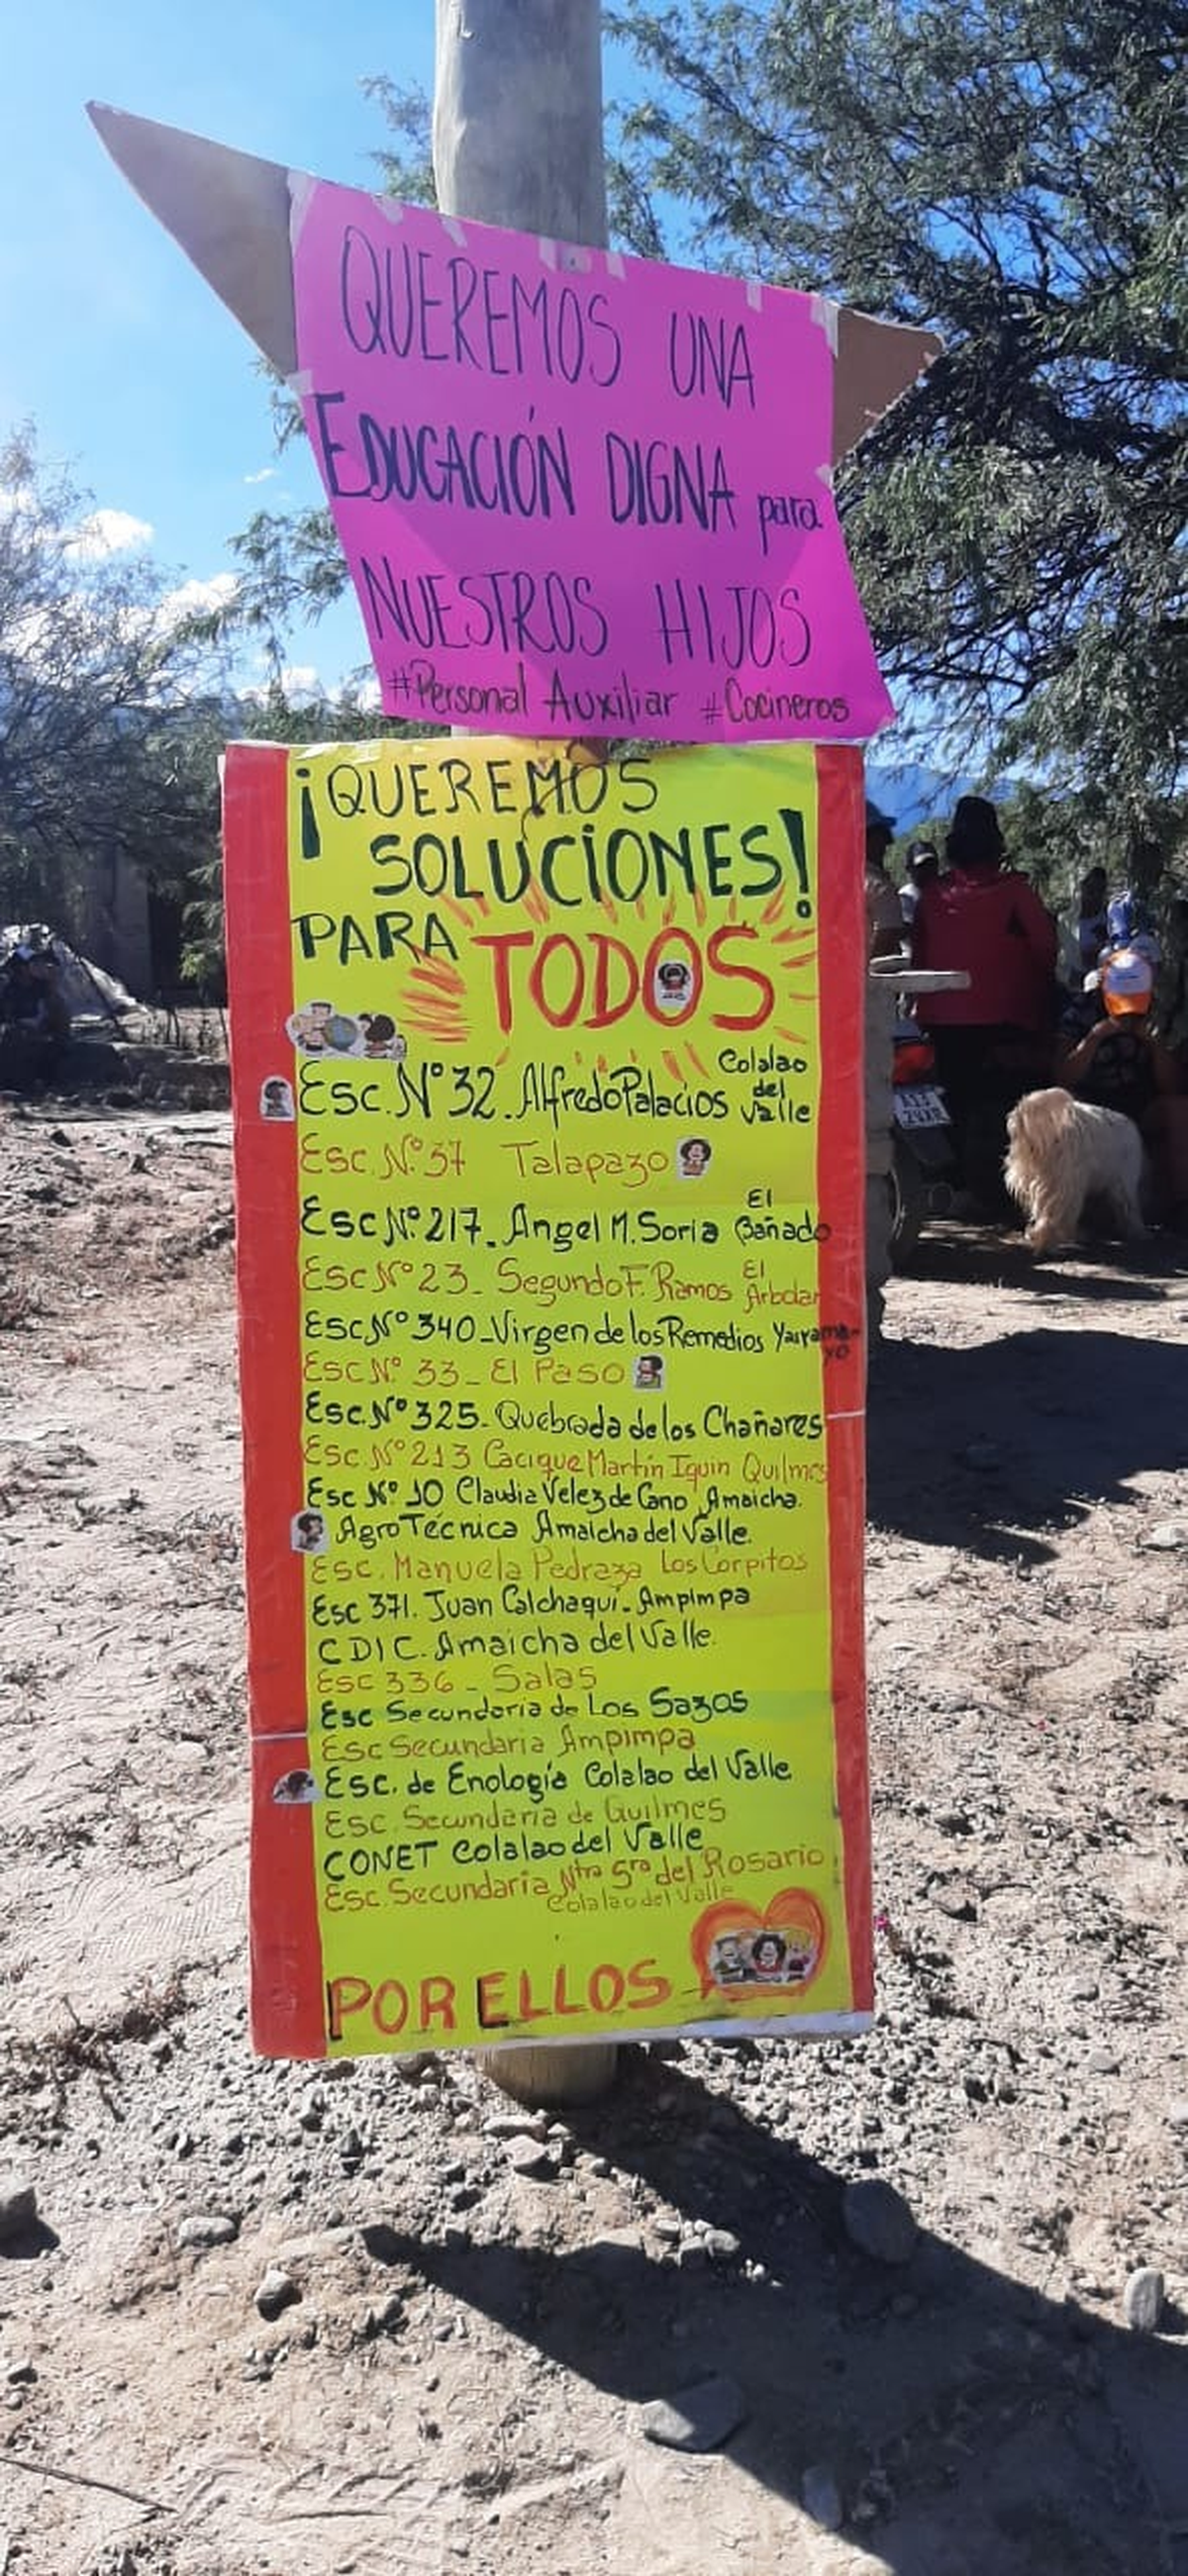 QUEREMOS UNA
EDUCACIÓN DIGNA para
NUESTROS HIJOS
#Personal Auxiliar #Cocineros
¡QUEREMOS
SOLUCIONES!
PARA TODOS
Esc. N° 32. Alfredo Palacios Colalao del Valle
Esc. N° 37 Talapazo
Esc N° 217. Angel M. Soria El Bañado
Esc N° 23 - Segundo F. Ramos El Arbolar
Esc N° 340 - Virgen de los Remedios
Esc N° 33 - El Paso
Esc. N° 325 - Quebrada de los Chañares
Esc N° 213 Cacique Martín Iquin Quilmes
Esc N° 10 Claudia Velez de Cano Amaicha.
AgroTécnica Amaicha del Valle.
Esc. Manuela Pedraza Los Corpitos
Esc 371. Juan Calchaquí - Ampimpa
CDIC. Amaicha del Valle.
Esc 336 - Salas
Esc Secundaria de Los Sazos
Esc Secundaria Ampimpa
Esc. de Enología Colalao del Valle
Esc. Secundaria de Quilmes
CONET Colalao del Valle
Esc. Secundaria Ntra Sra del Rosario
Colalao del Valle
POR ELLOS